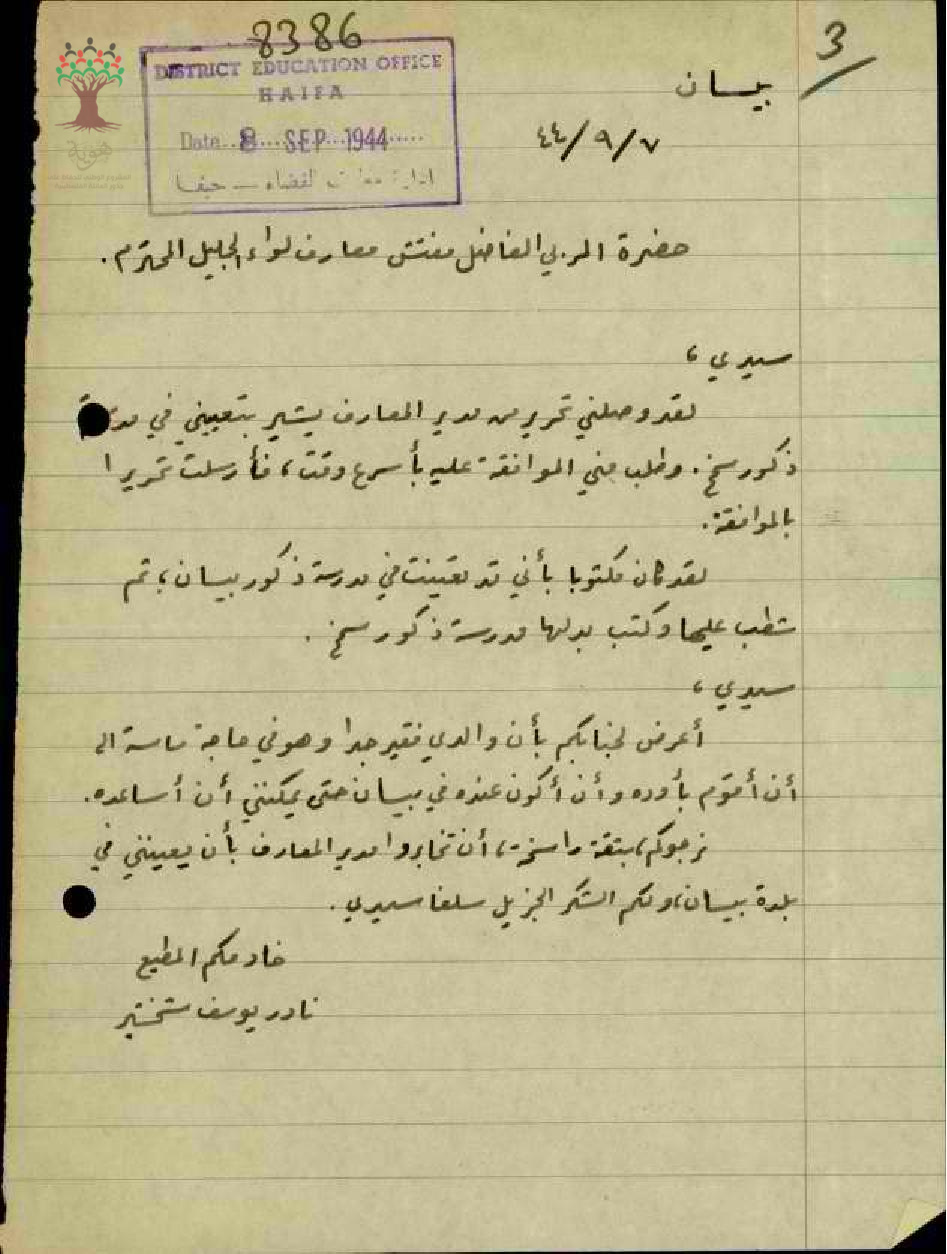 8386
3
DISTRICT EDUCATION OFFICE
HAIFA
Date 8 SEP 1944
ادارة معارف القضاء - حيفا
بيسان
٤٤/٩/٧
هوية
حضرة المربي الفاضل مفتش معارف لواء الجليل المحترم.
سيدي ،
لقد وصلني تحرير من مدير المعارف يشير بتعييني في
ذكور سمخ. وطلب مني الموافقة عليه بأسرع وقت، فأرسلت تحريرا
بالموافقة.
لقد كان مكتوبا بأني قد تعينت في مدرسة ذكور بيسان، ثم
شطب عليها وكتب بدلها مدرسة ذكور سمخ.
سيدي ،
أعرض لجنابكم بأن والدي فقير جدا وهو في حاجة ماسة الى
أن أقوم بأوده وأن أكون عنده في بيسان حتى يمكنني أن أساعده.
نرجوكم، بثقة راسخة، أن تخابروا مدير المعارف بأن يعينني في
بلدة بيسان، ولكم الشكر الجزيل سلفا سيدي.
خادمكم المطيع
نادر يوسف